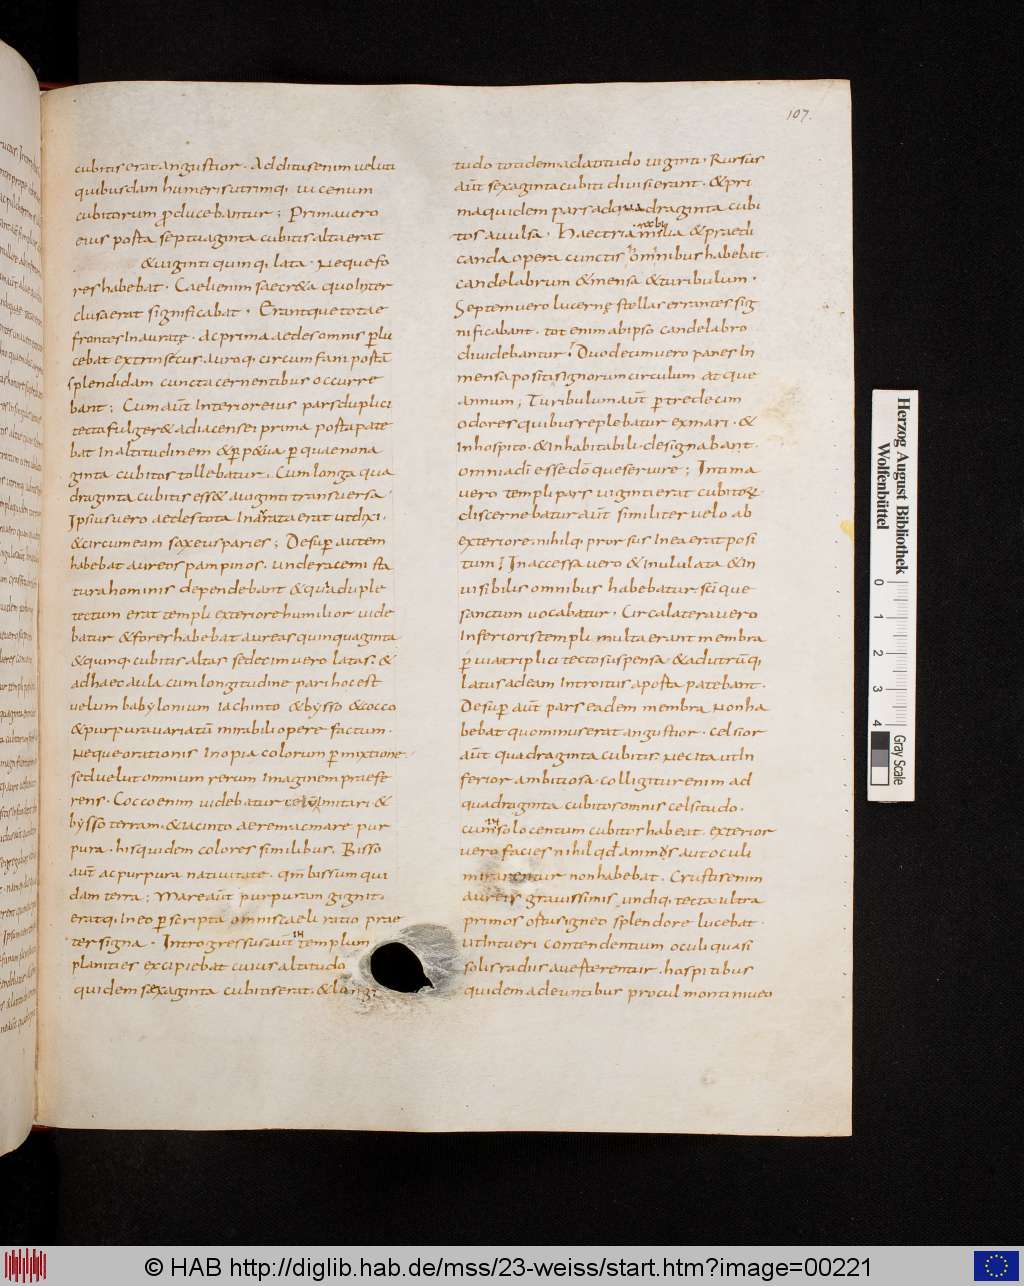 107.
cubitis erat angustior. Additus enim veluti
quibusdam humeris utrimq; vicenum
cubitorum ꝓducebantur; Prima vero
eius posta septuaginta cubitis alta erat
& viginti quinq; lata. Neque fo
res habebat. Caeli enim saecr&a quo Inter
clusa erat significabat. Erantque totae
frontes Inauratę. Ac prima aedes omnis ꝑlu
cebat extrinsecus auroq; circumfani postā
splendidam cuncta cernentibus occurre
bant; Cum aūt Interior eius pars duplici
tecto fulger& adiacens ei prima posta pate
bat In altitudinem & ꝑp&ua ꝑ quae nona
ginta cubitos tollebatur. Cum longa qua
draginta cubitis ess& a viginti transversa.
Ipsius vero aedes tota Inaurata erat ut dixi.
& circum eam saxeus paries; Desuꝑ autem
habebat aureos pampinos. unde racemi sta
tura hominis dependebant & quia duple
tectum erat templi exteriore humilior vide
batur & fores habebat aureas quinquaginta
& quinq; cubitis altas sedecim vero latas. &
ad haec aula cum longitudine pari hoc est
velum babylonium Iachinto & bysso & cocco
& purpura variatū mirabili opere factum.
Neque orationis Inopia colorum ꝑmixtione
sed velut omnium rerum Imaginem praefe
rens. Cocco enim videbatur Imitari. &
bysso terram. & Iacinto aerem ac mare pur
pura. his quidem colores similibus. Bisso
aūt ac purpura nativitate. qm̄ bissum qui
dam terra; mare aūt purpuram gignit.
eratq; In eo ꝑscripta omnis caeli ratio prae
ter signa. Introgressus aūt IN templum
planities excipiebat cuius altitudo
quidem sexaginta cubitis erat. & longi
tudo totidem ac latitudo viginti. Rursus
aūt sexaginta cubiti divisi erant. & pri
ma quidem pars ad quadraginta cubi
tos avulsa. Haec tria mirabilia & praedi
canda opera cunctis hominibus habebat.
candelabrum & mensa & turibulum.
Septem vero lucernę stellas errantes sig
nificabant. tot enim ab ipso candelabro
dividebantur. Duodecim vero panes In
mensa positi signorum circulum atque
annum; Turibulum aūt ꝑ tredecim
odores quibus replebatur ex mari. &
Inhospito. & Inhabitabili. designabant.
omnia di esse dō que servire; Intima
vero templi pars viginti erat cubitoꝝ
discernebatur aūt similiter velo ab
exteriore. nihilq; prorsus In ea erat posi
tum. Inaccessa vero & Inviolata & In
visibilis omnibus habebatur. scī que
sanctum vocabatur. Circa latera vero
Inferioris templi multa erant membra
ꝑvia triplici tecto suspensa & ad utrūq;
latus ad eam Introitus a posta patebant.
Desuꝑ aūt pars eadem membra non ha
bebat quominus erat angustior. celsior
aūt quadraginta cubitis. nec ita ut In
ferior ambitiosa. colligitur enim ad
quadraginta cubitos omnis celsitudo.
cum IN solo centum cubitos habeat. exterior
vero facies nihil qd̄ animos aut oculi
mirarentur non habebat. Crustis enim
aureis gravissimis. undiq; tecta ultra
primos ortus igneo splendore lucebat.
ut Intueri contendentium oculi quasi
solis radiis averterentur. hospitibus
quidem adeuntibus procul monti niveo
Herzog August Bibliothek
Wolfenbüttel
0 1 2 3 4
Gray Scale
© HAB http://diglib.hab.de/mss/23-weiss/start.htm?image=00221